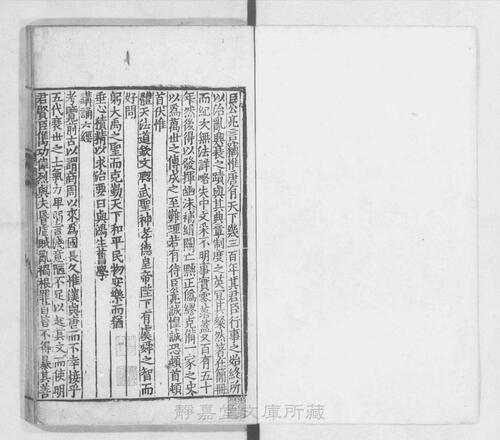 臣公亮言竊惟唐有天下幾三百年其君臣行事之始終所
以治亂興衰之蹟與其典章制度之英宜其粲然著在簡冊
而紀次無法詳略失中文采不明事實零落蓋又百有五十
年然後得以發揮幽沬補緝闕亡黜正偽繆克備一家之史
以為萬世之傳成之至難理若有待臣公亮誠惶誠恐頓首頓
首伏惟
體天法道欽文聰武聖神孝德皇帝陛下有虞舜之智而
好問
躬大禹之聖而克勤天下和平民物安樂而猶
垂心積精以求治要日與鴻生舊學
講誦六經
考覽前古以謂商周以來為國長久惟漢與唐而不幸接乎
五代衰世之士氣力卑弱言淺意陋不足以起其文而使明
君賢臣雋功偉烈與夫昏虐賊亂禍根罪首皆不得暴其善
靜嘉堂文庫所藏